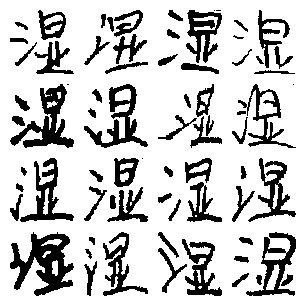 湿湿湿湿
湿湿湿湿
湿湿湿湿
湿湿湿湿